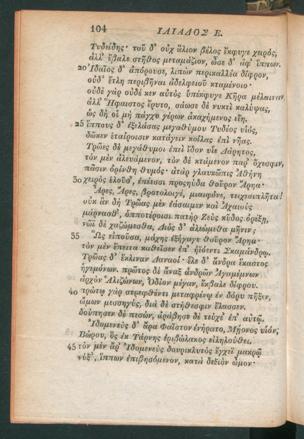 104 ΙΛΙΑΔΟΣ Ε.
Τυδείδης· τοῦ δ' οὐχ ἅλιον βέλος ἔκφυγε χειρός,
ἀλλ' ἔβαλε στῆθος μεταμάζιον, ὦσε δ' ἀφ' ἵππων.
20 Ἰδαῖος δ' ἀπόρουσε, λιπὼν περικαλλέα δίφρον,
οὐδ' ἔτλη περιβῆναι ἀδελφειοῦ κταμένοιο·
οὐδὲ γὰρ οὐδέ κεν αὐτὸς ὑπέκφυγε Κῆρα μέλαιναν,
ἀλλ' Ἥφαιστος ἔρυτο, σάωσε δὲ νυκτὶ καλύψας,
ὡς δή οἱ μὴ πάγχυ γέρων ἀκαχήμενος εἴη.
25 ἵππους δ' ἐξελάσας μεγαθύμου Τυδέος υἱός,
δῶκεν ἑταίροισιν κατάγειν κοίλας ἐπὶ νῆας.
Τρῶες δὲ μεγάθυμοι ἐπεὶ ἴδον υἷε Δάρητος,
τὸν μὲν ἀλευάμενον, τὸν δὲ κτάμενον παρ' ὄχεσφιν,
πᾶσιν ὀρίνθη θυμός· ἀτὰρ γλαυκῶπις Ἀθήνη
30 χειρὸς ἑλοῦσ', ἐπέεσσι προσηύδα θοῦρον Ἄρηα·
Ἆρες, Ἄρες, βροτολοιγέ, μιαιφόνε, τειχεσιπλῆτα!
οὐκ ἂν δὴ Τρῶας μὲν ἐάσαιμεν καὶ Ἀχαιοὺς
μάρνασθ', ὁπποτέροισι πατὴρ Ζεὺς κῦδος ὀρέξῃ,
νῶϊ δὲ χαζώμεσθα, Διὸς δ' ἀλεώμεθα μῆνιν;
35 Ὣς εἰποῦσα, μάχης ἐξήγαγε θοῦρον Ἄρηα·
τὸν μὲν ἔπειτα καθεῖσεν ἐπ' ἠϊόεντι Σκαμάνδρῳ.
Τρῶας δ' ἔκλιναν Δαναοί· ἕλε δ' ἄνδρα ἕκαστος
ἡγεμόνων. πρῶτος δὲ ἄναξ ἀνδρῶν Ἀγαμέμνων
ἀρχὸν Ἁλιζώνων, Ὀδίον μέγαν, ἔκβαλε δίφρου.
40 πρώτῳ γὰρ στρεφθέντι μεταφρένῳ ἐν δόρυ πῆξεν,
ὤμων μεσσηγύς, διὰ δὲ στήθεσφιν ἔλασσεν.
δούπησεν δὲ πεσών, ἀράβησε δὲ τεύχε' ἐπ' αὐτῷ.
Ἰδομενεὺς δ' ἄρα Φαῖστον ἐνήρατο, Μῄονος υἱόν,
Βώρου, ὃς ἐκ Τάρνης ἐριβώλακος εἰληλούθει.
45 τὸν μὲν ἄρ' Ἰδομενεὺς δουρικλυτὸς ἔγχεϊ μακρῷ
νύξ', ἵππων ἐπιβησόμενον, κατὰ δεξιὸν ὦμον·